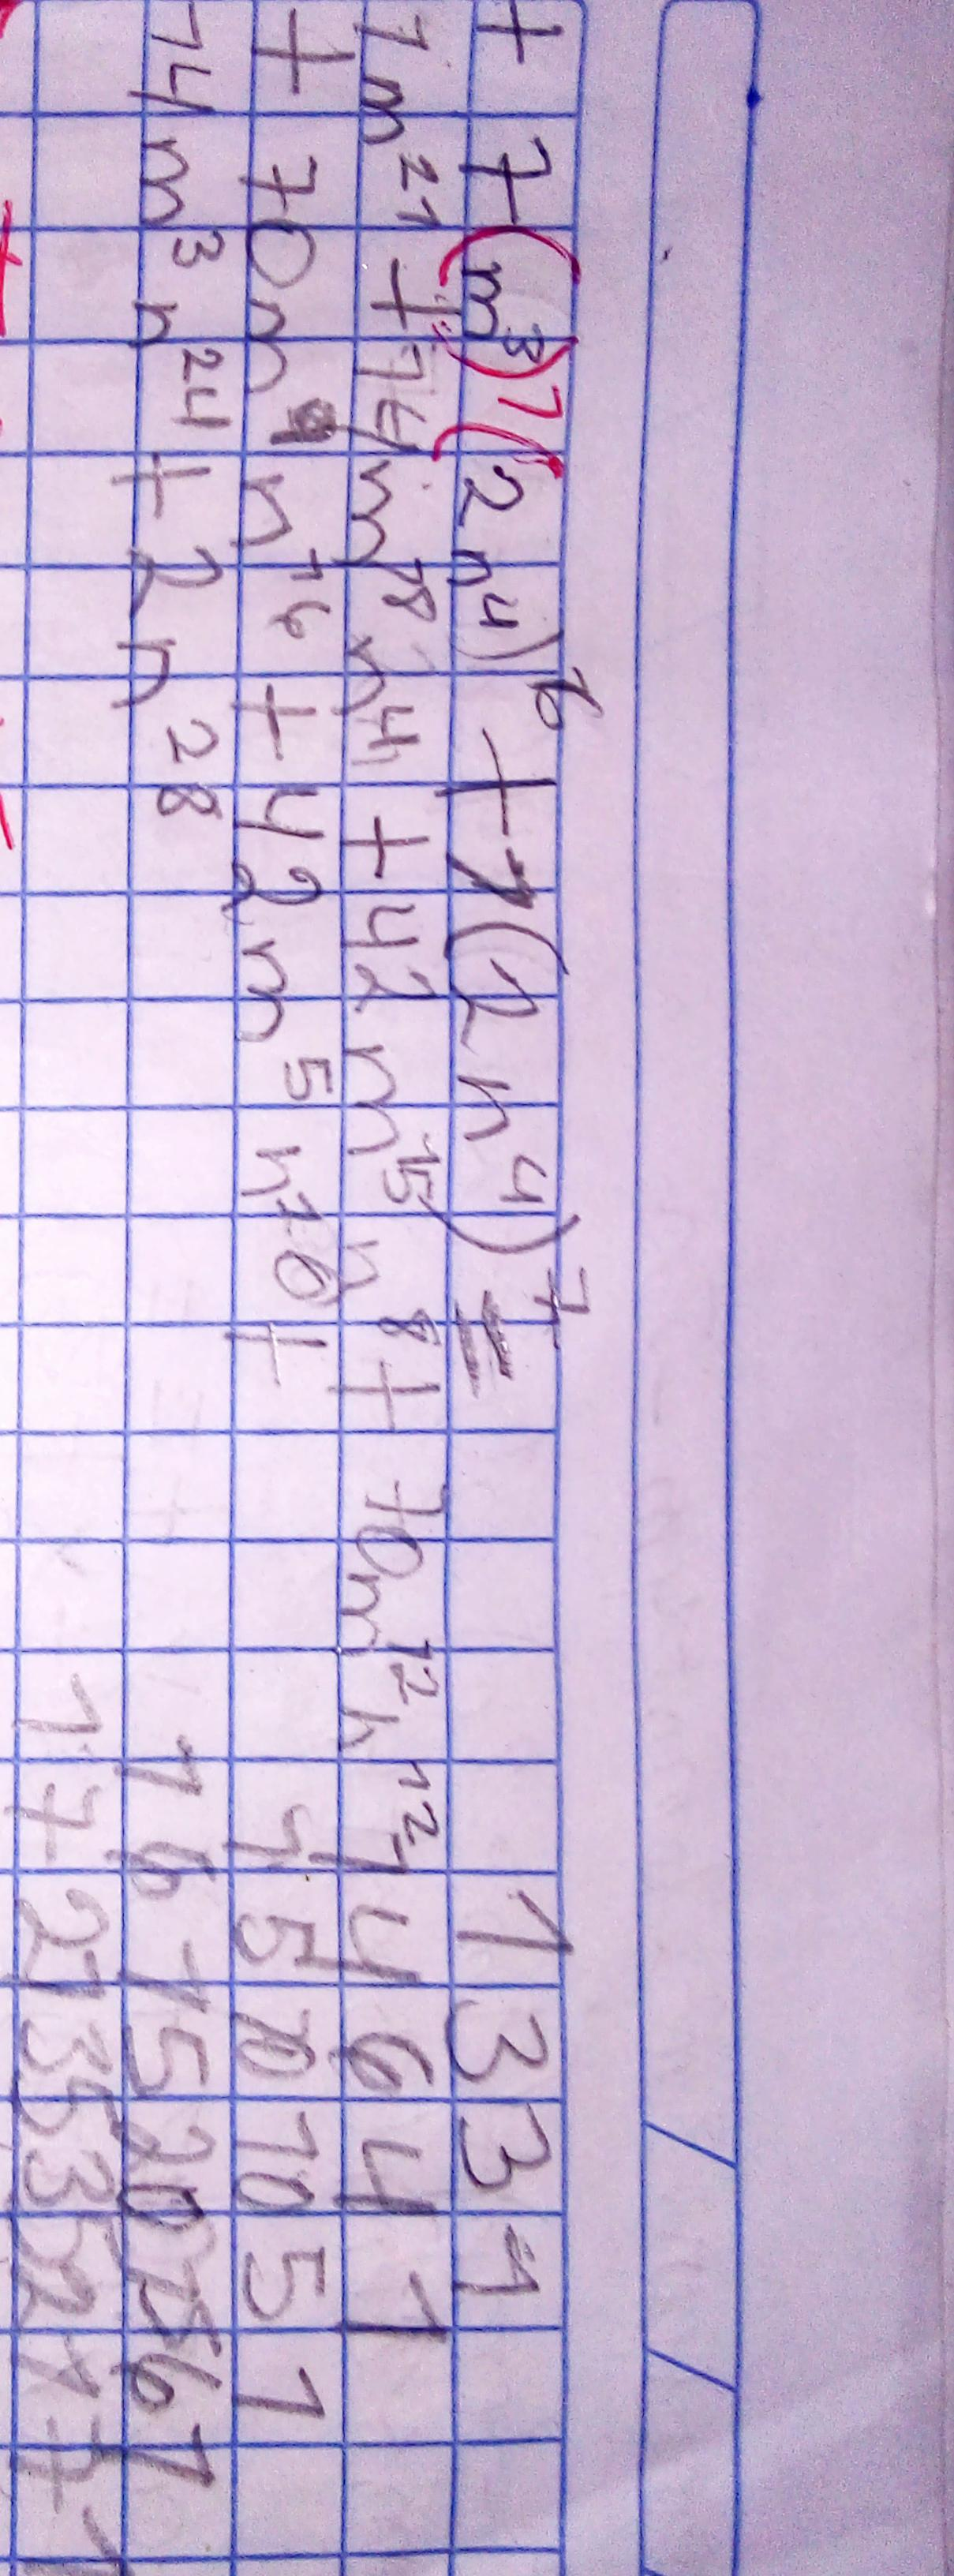 + 7(m³)¹(2n⁴)⁶ + 1(2n⁴)⁷ =
1m²¹ + 14m¹⁸n⁴ + 42m¹⁵n⁸ + 70m¹²n¹²
+ 70m⁹n¹⁶ + 42m⁵n²⁰ +
14m³n²⁴ + 2n²⁸
1 3 3 1
1 4 6 4 1
1 5 10 10 5 1
1 6 15 20 15 6 1
1 7 21 35 35 21 7 1